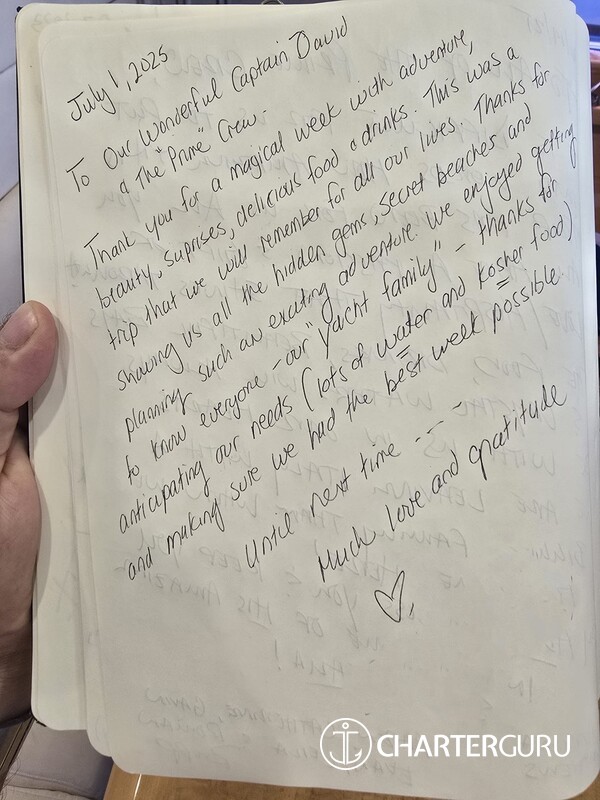 July 1, 2025
To Our Wonderful Captain David
& The "Prime" Crew.
Thank you for a magical week with adventure,
beauty, suprises, delicious food & drinks. This was a
trip that we will remember for all our lives. Thanks for
showing us all the hidden gems, secret beaches and
planning such an exciting adventure. We enjoyed getting
to know everyone - our "yacht family" - thanks for
anticipating our needs (lots of water and kosher food)
and making sure we had the best week possible
Until next time ----
Much love and gratitude
CHARTERGURU